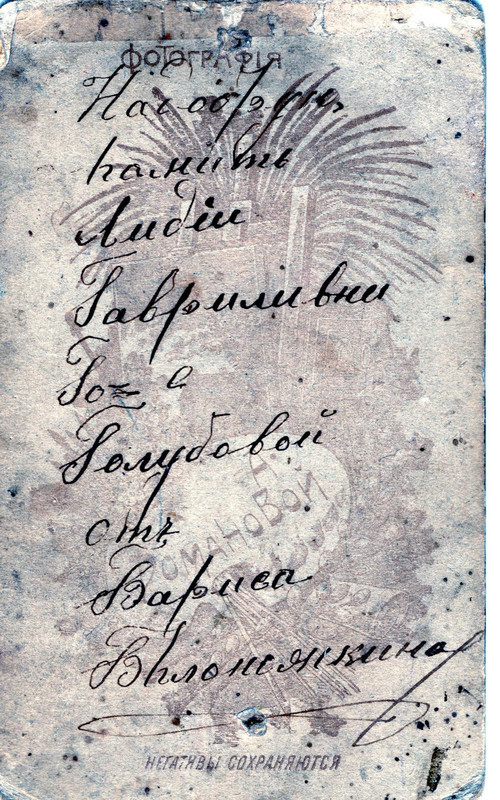 ФОТОГРАФІЯ
На добрую
память
Лидіи
Гавриливни
Го= е
Голубовой
отъ
Бариса
А.
РОМАНОВОЙ
НЕГАТИВЫ СОХРАНЯЮТСЯ